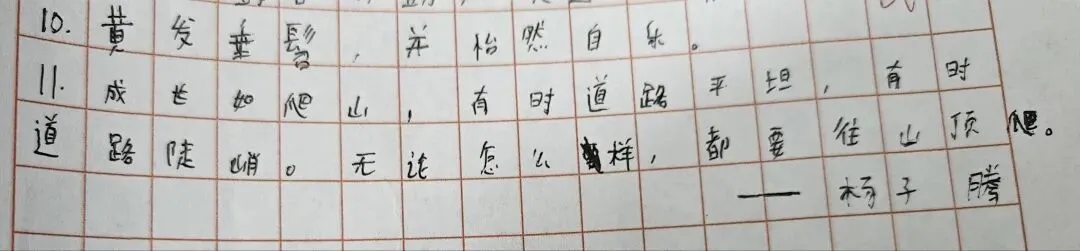 10. 黄发垂髫，并怡然自乐。
11. 成长如爬山，有时道路平坦，有时
道路陡峭。无论怎么样，都要往山顶爬。
——杨子腾